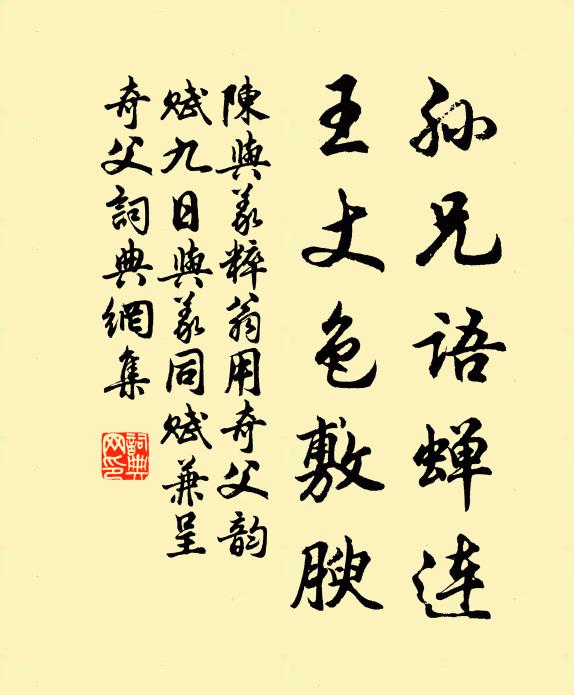 孙兄语蝉连
王丈色敷腴
陳與義粹翁用奇父韵
赋九日與義同赋兼呈
奇父詞典網集
詞典网印